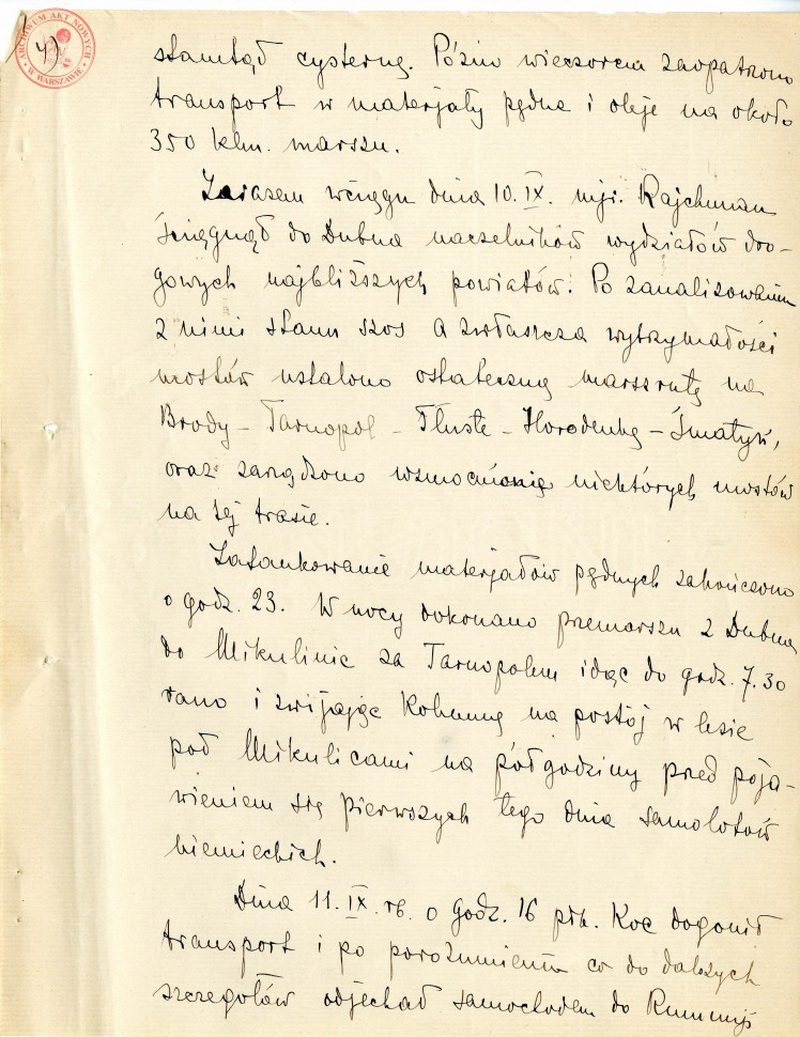 ARCHIWUM AKT NOWYCH
W WARSZAWIE
4)
stamtąd cysternę. Późno wieczorem zaopatrzono
transport w materjały pędne i oleje na około
350 klm. marszu.
Zarazem wciągu dnia 10.IX. mjr. Rajchman
ściągnął do Dubna naczelników wydziałów dro-
gowych najbliższych powiatów. Po zanalizowaniu
z nimi stanu szos a zwłaszcza wytrzymałości
mostów ustalono ostateczną marszrutę na
Brody – Tarnopol – Tłuste – Horodenkę – Śniatyń,
oraz zarządzono wzmocnienie niektórych mostów
na tej trasie.
Zatankowanie materjałów pędnych zakończono
o godz. 23. W nocy dokonano przemarszu z Dubna
do Mikulinic za Tarnopolem idąc do godz. 7.30
rano i zwijając kolumnę na postój w lesie
pod Mikulicami na półgodziny przed poja-
wieniem się pierwszych tego dnia samolotów
niemieckich.
Dnia 11.IX.rb. o godz. 16 płk. Koc dogonił
transport i po porozumieniu co do dalszych
szczegołów odjechał samochodem do Rumunji